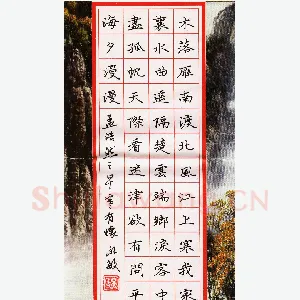 木落雁南渡北風江上寒我家
襄水曲遥隔楚雲端鄉淚客中
盡孤帆天際看迷津欲有問平
海夕漫漫
孟浩然之早寒有懷